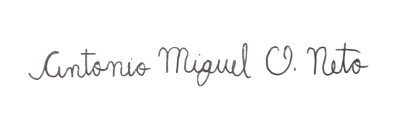 Antonio Miguel O. Neto